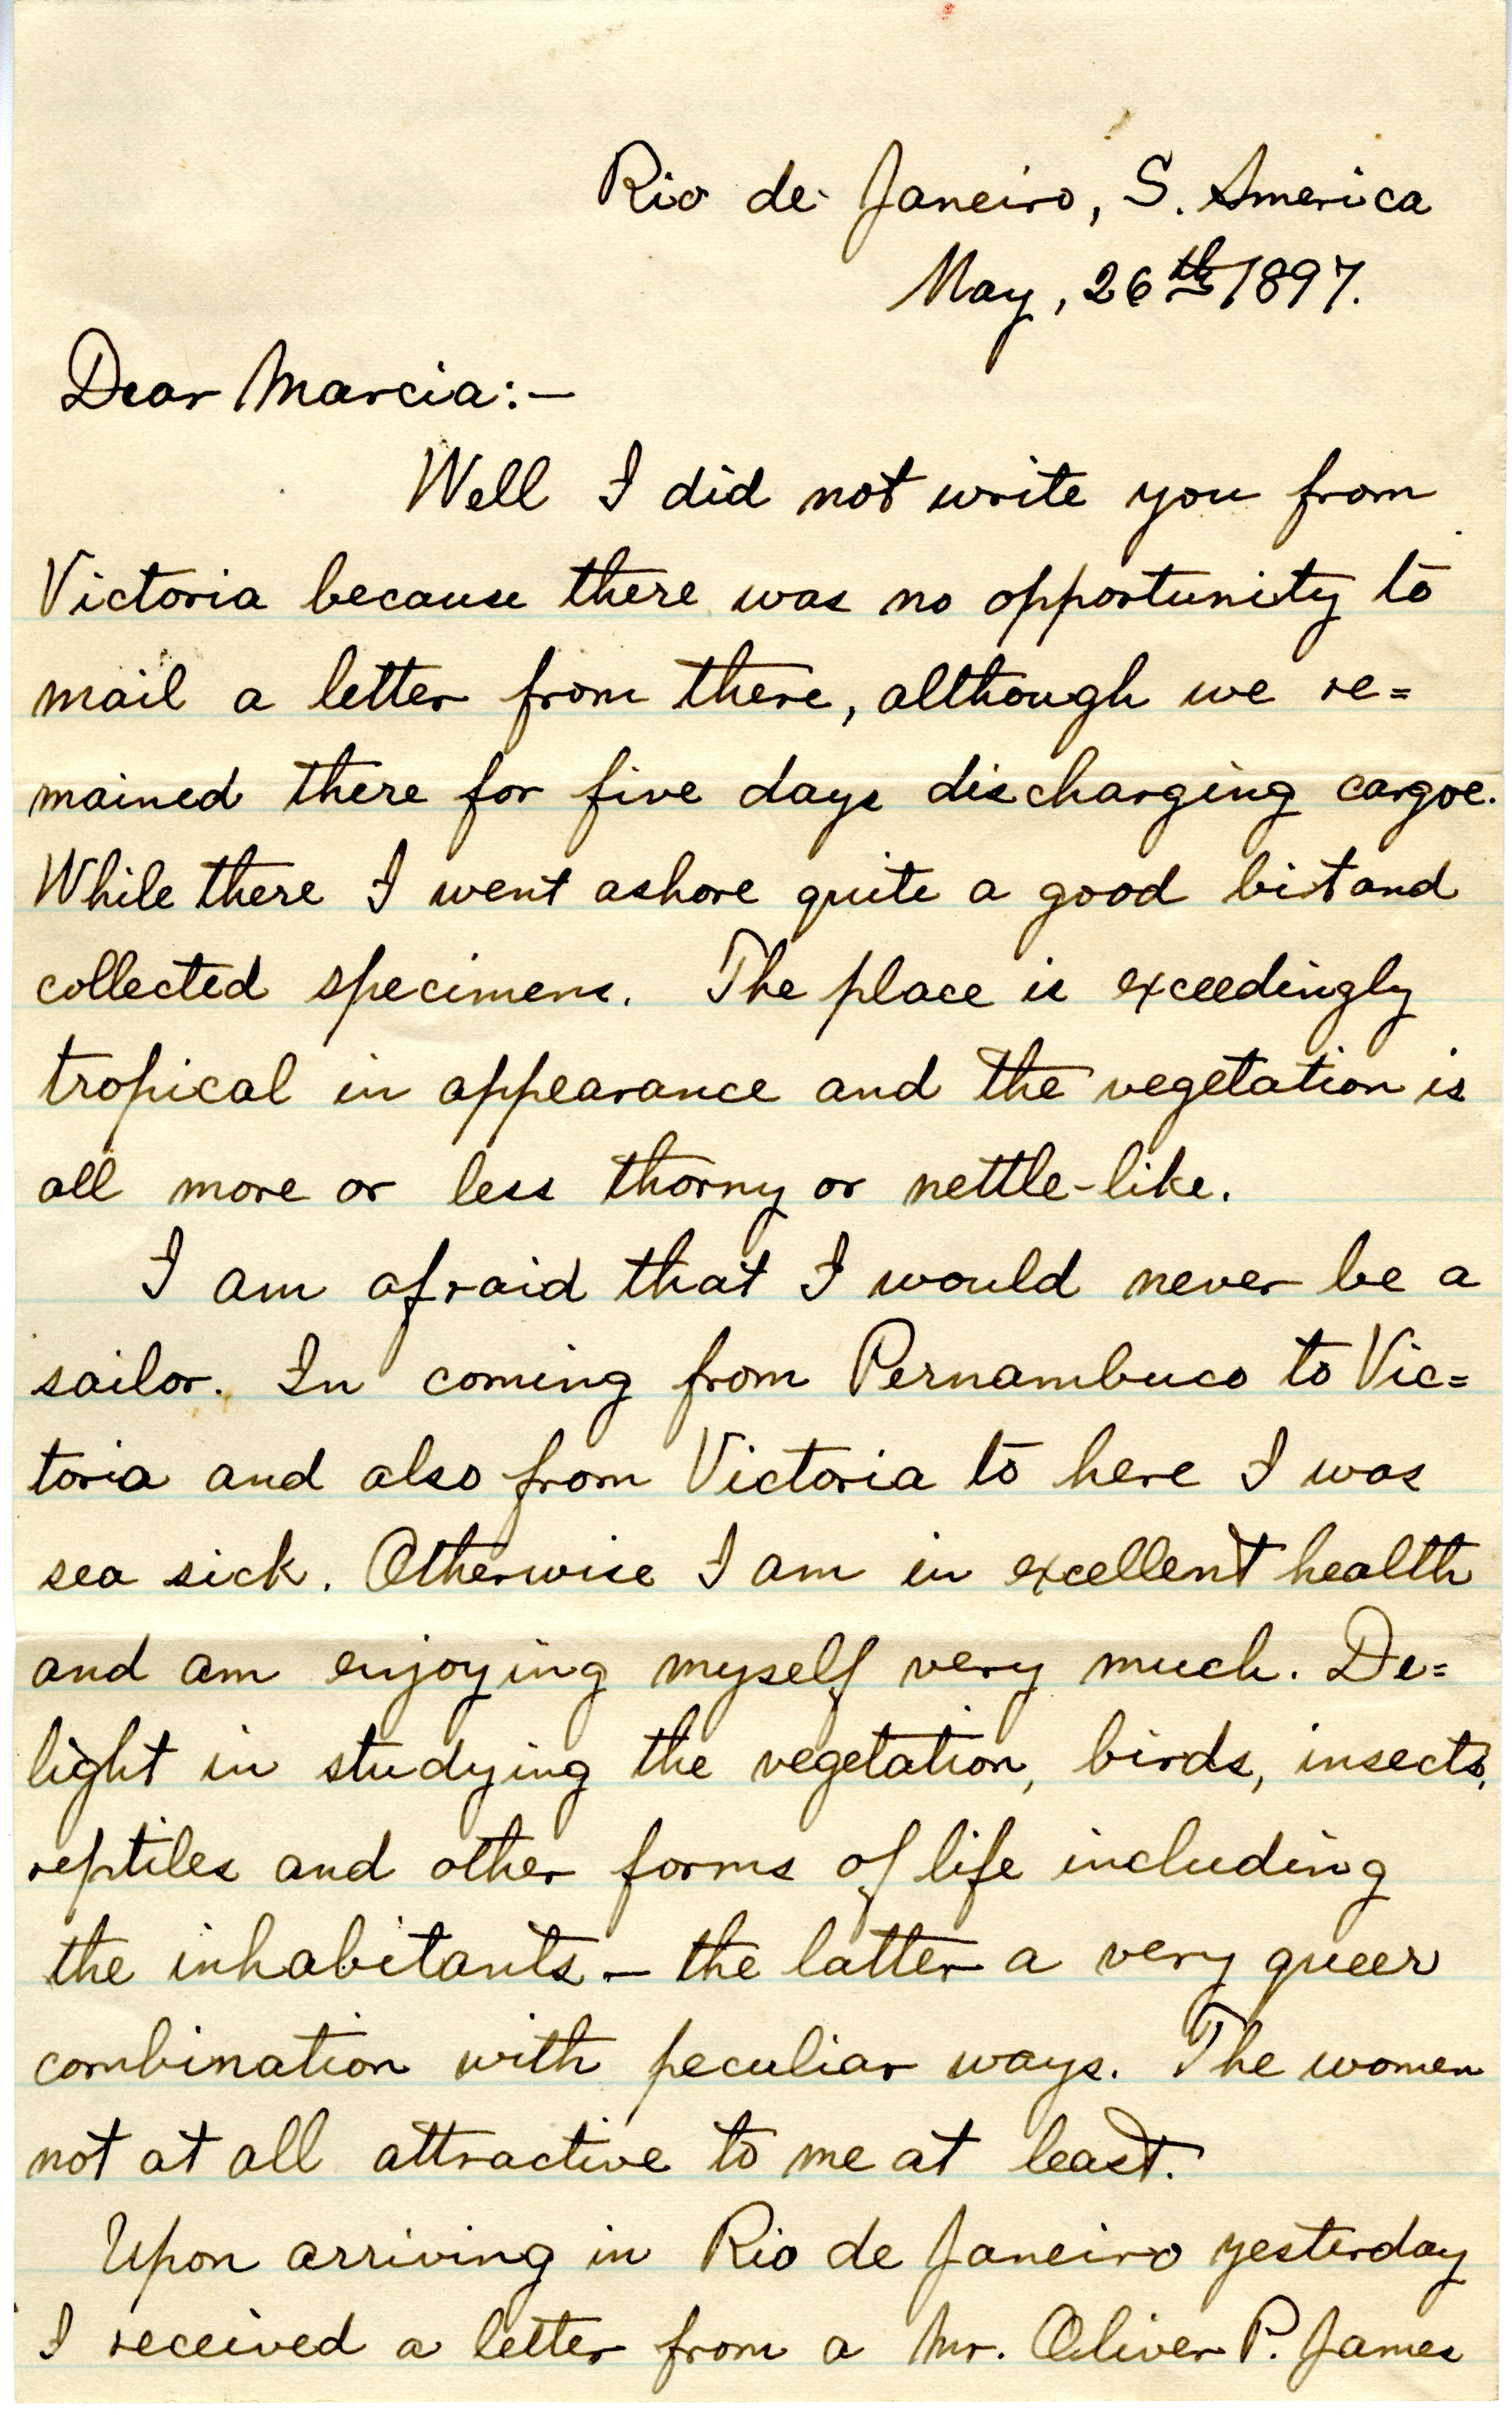 Rio de Janeiro, S. America
May, 26th 1897.
Dear Marcia:—
Well I did not write you from
Victoria because there was no opportunity to
mail a letter from there, although we re=
mained there for five days discharging cargoe.
While there I went ashore quite a good bit and
collected specimens. The place is exceedingly
tropical in appearance and the vegetation is
all more or less thorny or nettle-like.
I am afraid that I would never be a
sailor. In coming from Pernambuco to Vic=
toria and also from Victoria to here I was
sea sick. Otherwise I am in excellent health
and am enjoying myself very much. De=
light in studying the vegetation, birds, insects,
reptiles and other forms of life including
the inhabitants — the latter a very queer
combination with peculiar ways. The women
not at all attractive to me at least.
Upon arriving in Rio de Janeiro yesterday
I received a letter from a Mr. Oliver P. James